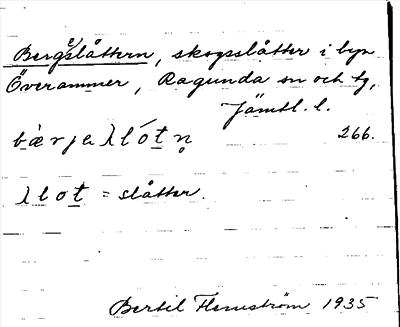 Bergeslåttern, skogsslåtter i byn
Överammer, Ragunda sn och tg,
Jämtl. l.
bèrjeʎlótn̥ 266.
ʎlot = slåtter.
Bertil Flemström 1935